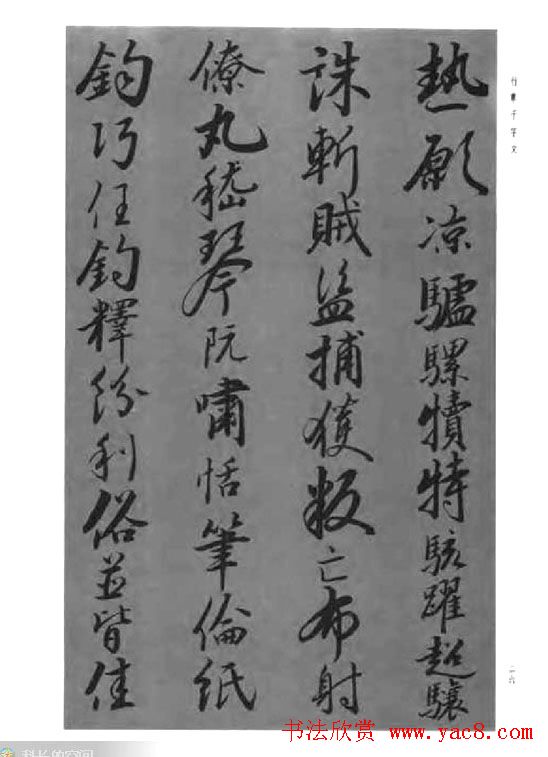 行書千字文
熱願凉驢騾犢特駭躍超驤
誅斬賊盜捕獲叛亡布射
僚丸嵇琴阮嘯恬筆倫紙
鈞巧任釣釋紛利俗並皆佳
二六
书法欣赏 www.yac8.com
科长的空间